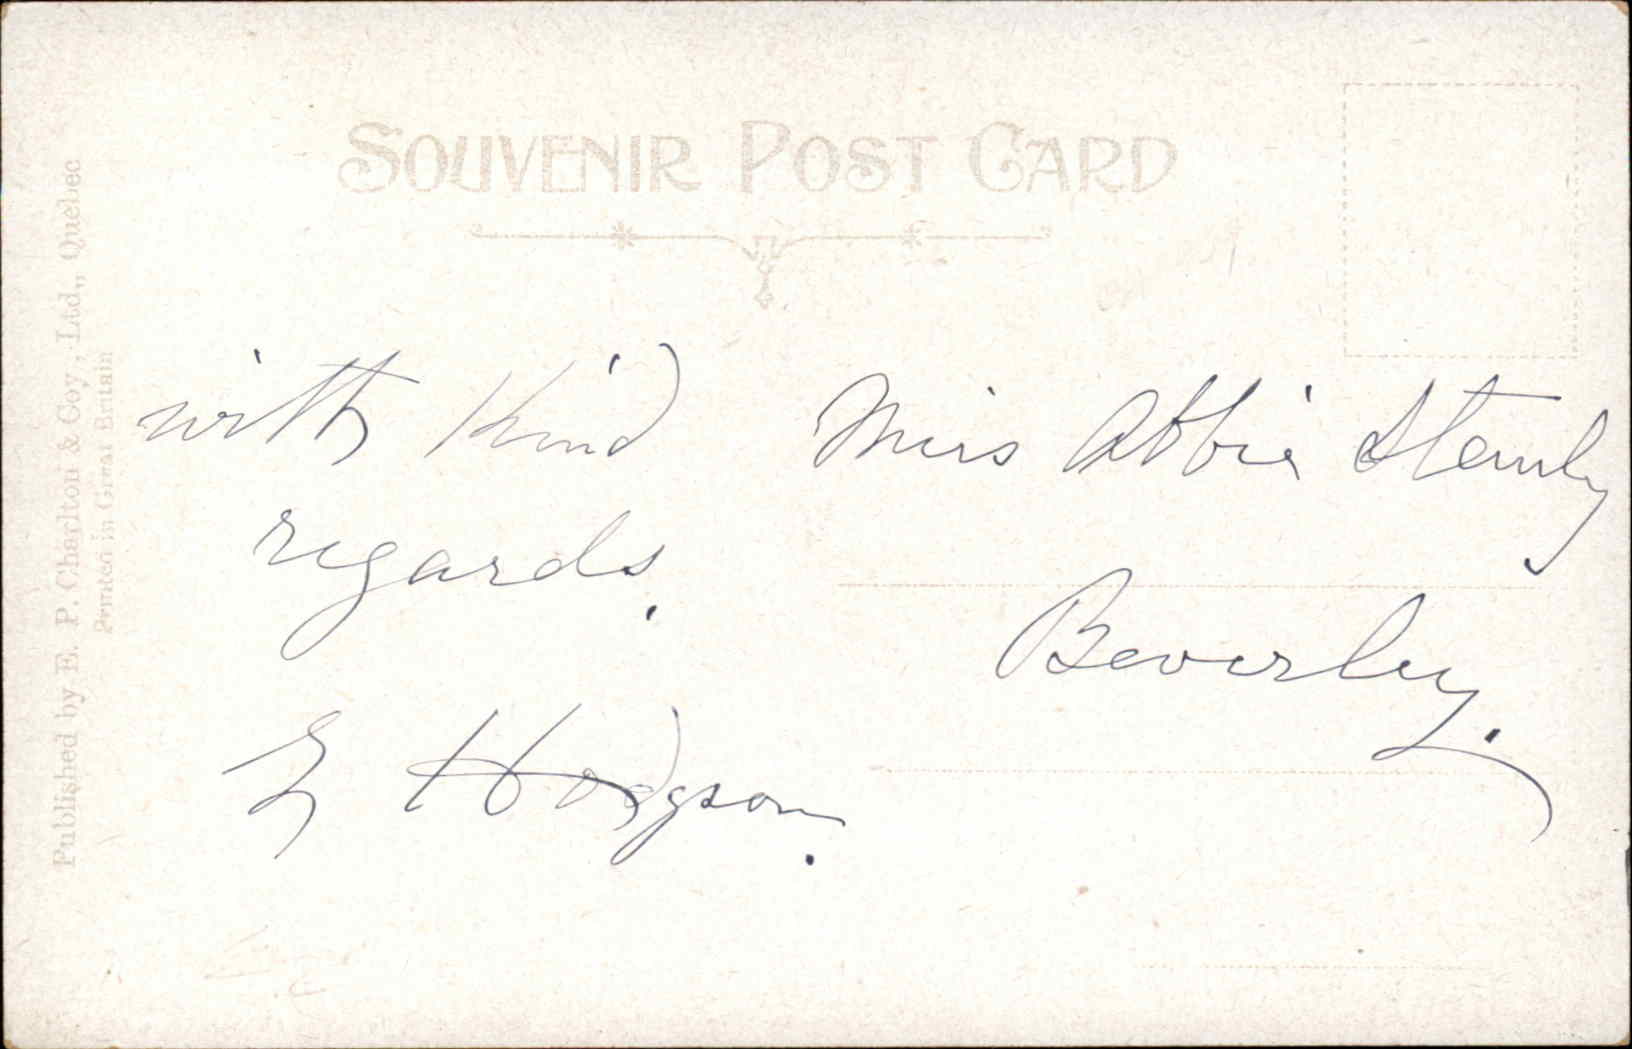 SOUVENIR POST CARD
with Kind
regards.
Hodgson.
Miss Abbie
Beverley.
Published by E. P. Charlton & Coy, Ltd., Quebec
Printed in Great Britain